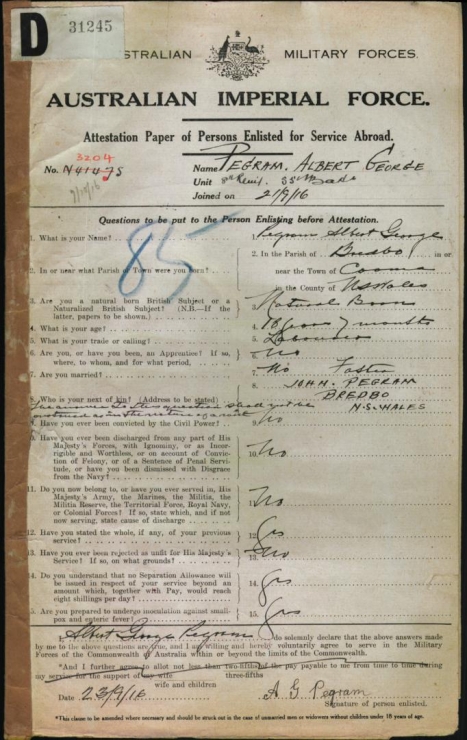 D 31245
AUSTRALIAN MILITARY FORCES.
AUSTRALIAN IMPERIAL FORCE.
Attestation Paper of Persons Enlisted for Service Abroad.
3204
No. N41475 Name PEGRAM. ALBERT GEORGE
Unit 35th
Joined on 2/9/16
Questions to be put to the Person Enlisting before Attestation.
85
1. What is your Name? Pegram Albert George
2. In or near what Parish or Town were you born? 2. In the Parish of Bredbo in or
near the Town of Cooma
in the County of NSWales
3. Are you a natural born British Subject or a
Naturalized British Subject? (N.B.—If the
latter, papers to be shown.) 3. Natural Born
4. What is your age? 18 years 7 months
5. What is your trade or calling? 5. Labourer
6. Are you, or have you been, an Apprentice? If so,
where, to whom, and for what period, 6. No
7. Are you married? 7. No
8. Who is your next of kin? (Address to be stated) 8. Father
JOHN. PEGRAM
BREDBO
N.S.WALES
9. Have you ever been convicted by the Civil Power? No
10. Have you ever been discharged from any part of His
Majesty's Forces, with Ignominy, or as Incor-
rigible and Worthless, or on account of Convic-
tion of Felony, or of a Sentence of Penal Servi-
tude, or have you been Dismissed with Disgrace
from the Navy? 10. No
11. Do you now belong to, or have you ever served in, His
Majesty's Army, the Marines, the Militia, the
Militia Reserve, the Territorial Force, Royal Navy,
or Colonial Forces? If so, state which, and if not
now serving, state cause of discharge 11. No
12. Have you stated the whole, if any, of your previous
service? 12. Yes
13. Have you ever been rejected as unfit for His Majesty's
Service? If so, on what grounds? 13. No
14. Do you understand that no Separation Allowance will
be issued in respect of your service beyond an
amount which, together with Pay, would reach
eight shillings per day? 14. Yes
15. Are you prepared to undergo inoculation against small-
pox and enteric fever? 15. Yes
I, Albert George Pegram do solemnly declare that the above answers made
by me to the above questions are true, and I am willing and hereby voluntarily agree to serve in the Military
Forces of the Commonwealth of Australia within or beyond the limits of the Commonwealth.
*And I further agree to allot not less than two-fifths of the pay payable to me from time to time during
my service for the support of my wife three-fifths
wife and children
Date 23/9/16 A G Pegram
Signature of person enlisted.
*This clause to be amended where necessary and should be struck out in the case of unmarried men or widowers without children under 18 years of age.